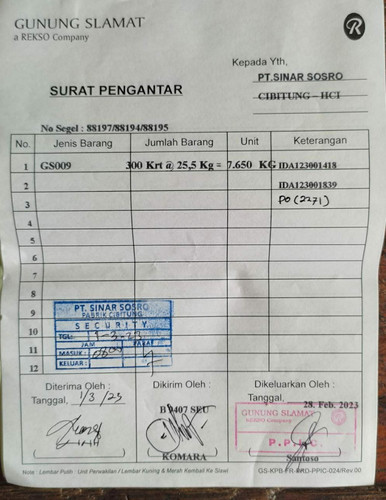 GUNUNG SLAMAT
a REKSO Company
R
Kepada Yth,
PT.SINAR SOSRO
SURAT PENGANTAR
CIBITUNG - HCI
No Segel : 88197/88194/88195
No. Jenis Barang Jumlah Barang Unit Keterangan
1 GS009 300 Krt @ 25,5 Kg = 7.650 KG IDA123001418
2 IDA123001839
3 PO (2271)
4
5
6
7
8
9
PT. SINAR SOSRO
PABRIK CIBITUNG
10 SECURITY
TGL: 1-3-23
11 JAM PARAF
MASUK:
12 KELUAR:
Diterima Oleh : Dikirim Oleh : Dikeluarkan Oleh :
Tanggal, 1/3/23 Tanggal, 28. Feb. 2023
B 9407 SEU
GUNUNG SLAMAT
a REKSO Company
P.P.I.C.
KOMARA Santoso
Note : Lembar Putih : Unit Perwakilan / Lembar Kuning & Merah Kembali Ke Slawi GS-KPB-FR-WRD-PPIC-024/Rev.00